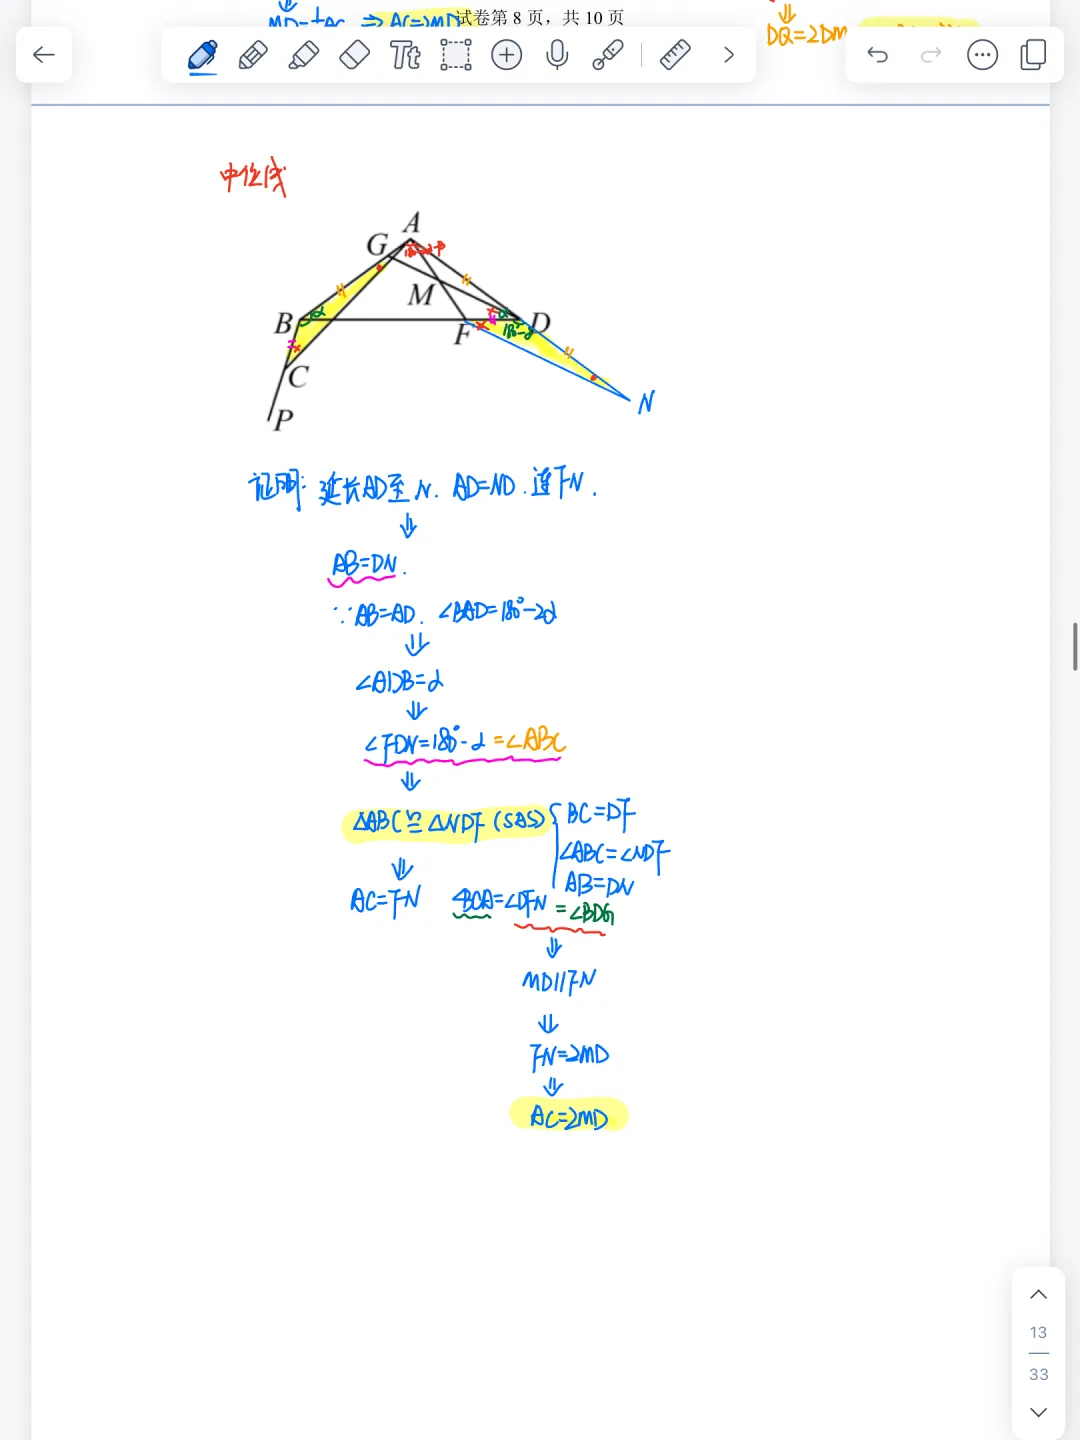 MD=½AC ⇒ AC=2MD
试卷第 8 页，共 10 页
DQ=2DM
Tt
中位线
A
G
180°-α-β
M
B
α
α
D
F
180°-α
C
P
N
证明: 延长AD至N. AD=ND. 连FN.
⇓
AB=DN.
∵AB=AD. ∠BAD=180°-2α
⇓
∠ADB=α
⇓
∠FDN=180°-α =∠ABC
⇓
△ABC≌△NDF (SAS) { BC=DF
∠ABC=∠NDF
AB=DN
⇓
AC=FN ∠BCA=∠DFN =∠BDG
⇓
MD//FN
⇓
FN=2MD
⇓
AC=2MD
13
33